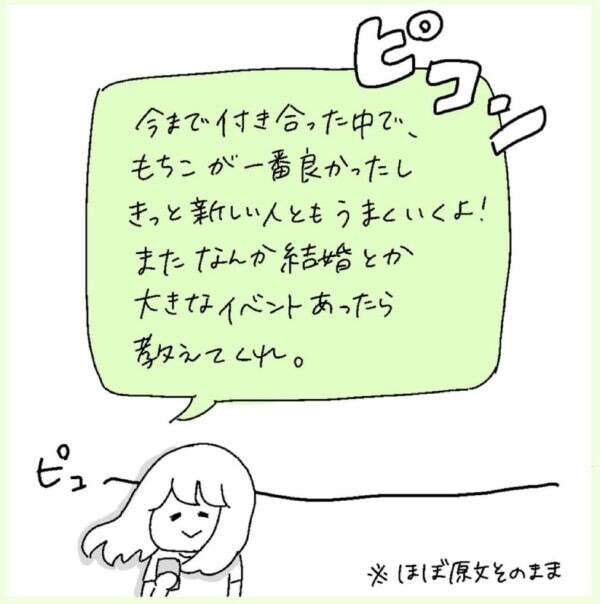 ピコン
今まで付き合った中で、
もちこが一番良かったし
きっと新しい人ともうまくいくよ!
またなんか結婚とか
大きなイベントあったら
教えてくれ。
ピュー
※ほぼ原文そのまま